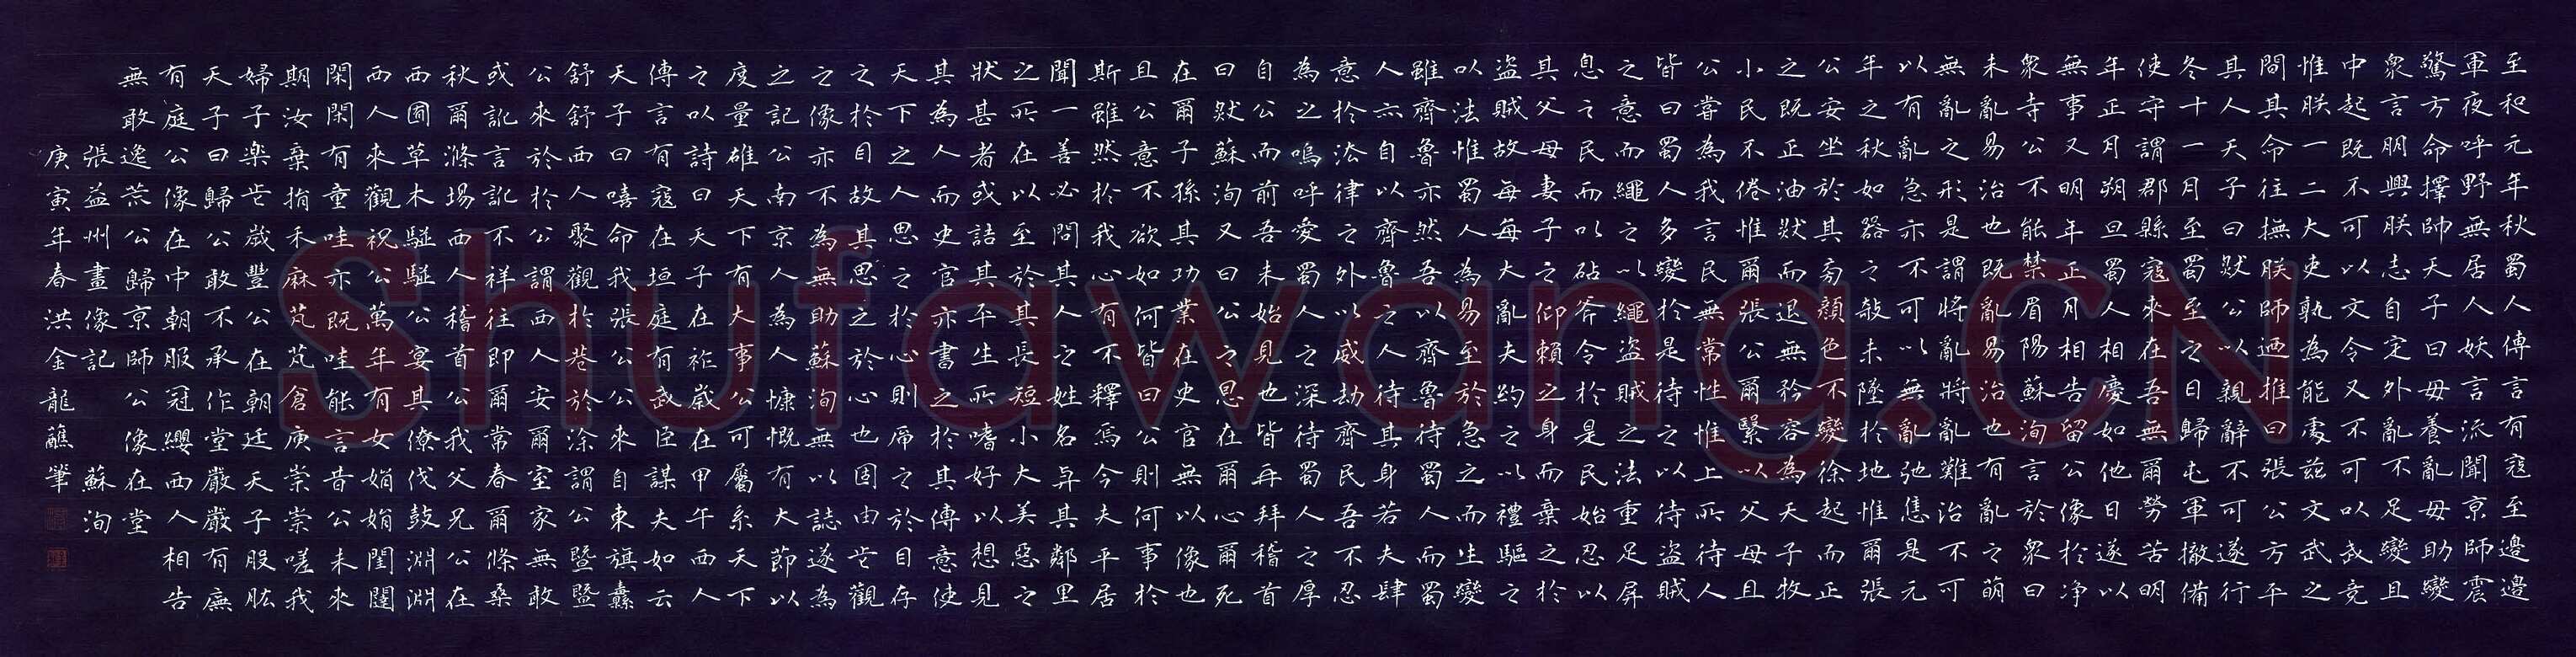 至和元年秋蜀人傳言有寇至邊邊
軍夜呼野無居人妖言流聞京師震
驚方命擇帥天子曰毋養亂毋助變
衆言朋興朕志自定外亂不足變且
中起既不可以文令又不可以武競
惟朕一二大吏孰為能處茲文武之
間其命往撫朕師迺推曰張公方平
其人天子曰然公以親辭不可遂行
冬十一月至蜀至之日歸屯軍撤備
使守謂郡縣寇來在吾無爾勞苦明
年正月朔旦蜀人相慶如他日遂以
無事又明年正月相告留公像於净
衆寺公不能禁眉陽蘇洵言於衆曰
未亂易治也既亂易治也有亂之萌
無亂之形是謂將亂將亂難治不可
以有亂急亦不可以無亂弛惟是元
年之秋如器之敧未墜於地惟爾張
公安坐於其旁顏色不變徐起而正
之既正油然而退無矜容為天子牧
小民不倦惟爾張公爾繄以父母且
公嘗為我言民無常性惟上所待人
皆曰蜀人多變於是待之以待盜賊
之意而繩之以繩盜賊之法重足屏
息之民而以砧斧令於是民始忍以
其父母妻子之仰賴之身而棄之於
盜賊故每每大亂夫約之以禮驅之
以法惟蜀人為易至於急之而生變
雖齊魯亦然吾以齊魯待蜀人而蜀
人亦自以齊魯之人待其身若夫肆
意於法律之外以威劫齊民吾不忍
為之嗚呼愛蜀人之深待蜀人之厚
自公而前吾未始見也皆再拜稽首
曰然蘇洵又曰公之恩在爾心爾死
在爾子孫其功業在史官無以像也
且公意不欲如何皆曰公則何事於
斯雖然於我心有不釋焉今夫平居
聞一善必問其人之姓名與其鄰里
之所在以至於其長短小大美惡之
狀甚者或詰其平生所嗜好以想見
其為人而史官亦書之於其傳意使
天下之人思之於心則存之於目存
之於目故其思之於心也固由此觀
之像亦不為無助蘇洵無以誌遂為
之記公南京人為人慷慨有大節以
度量雄天下有大事公可屬系天下
之以詩曰天子在祚歲在甲午西人
傳言有寇在垣庭有武臣謀夫如云
天子曰嘻命我張公公來自東旗纛
舒舒西人聚觀於巷於涂謂公暨暨
公來於於公謂西人安爾室家無敢
或訛訛言不祥往即爾常春爾條桑
秋爾滌場西人稽首公我父兄公在
西囿草木駢駢公宴其僚伐鼓淵淵
西人來觀祝公萬年有女娟娟閨闥
閑閑有童哇亦既哇能言昔公未來
期汝棄捐禾麻芃芃倉庾崇崇嗟我
婦子樂此歲豐公在朝廷天子股肱
天子曰歸公敢不承作堂嚴嚴有廡
有庭公像在中朝服冠纓西人相告
無敢逸荒公歸京師公像在堂
張益州畫像記 蘇洵
庚寅年春洪金龍蘸筆
Shufawang.CN